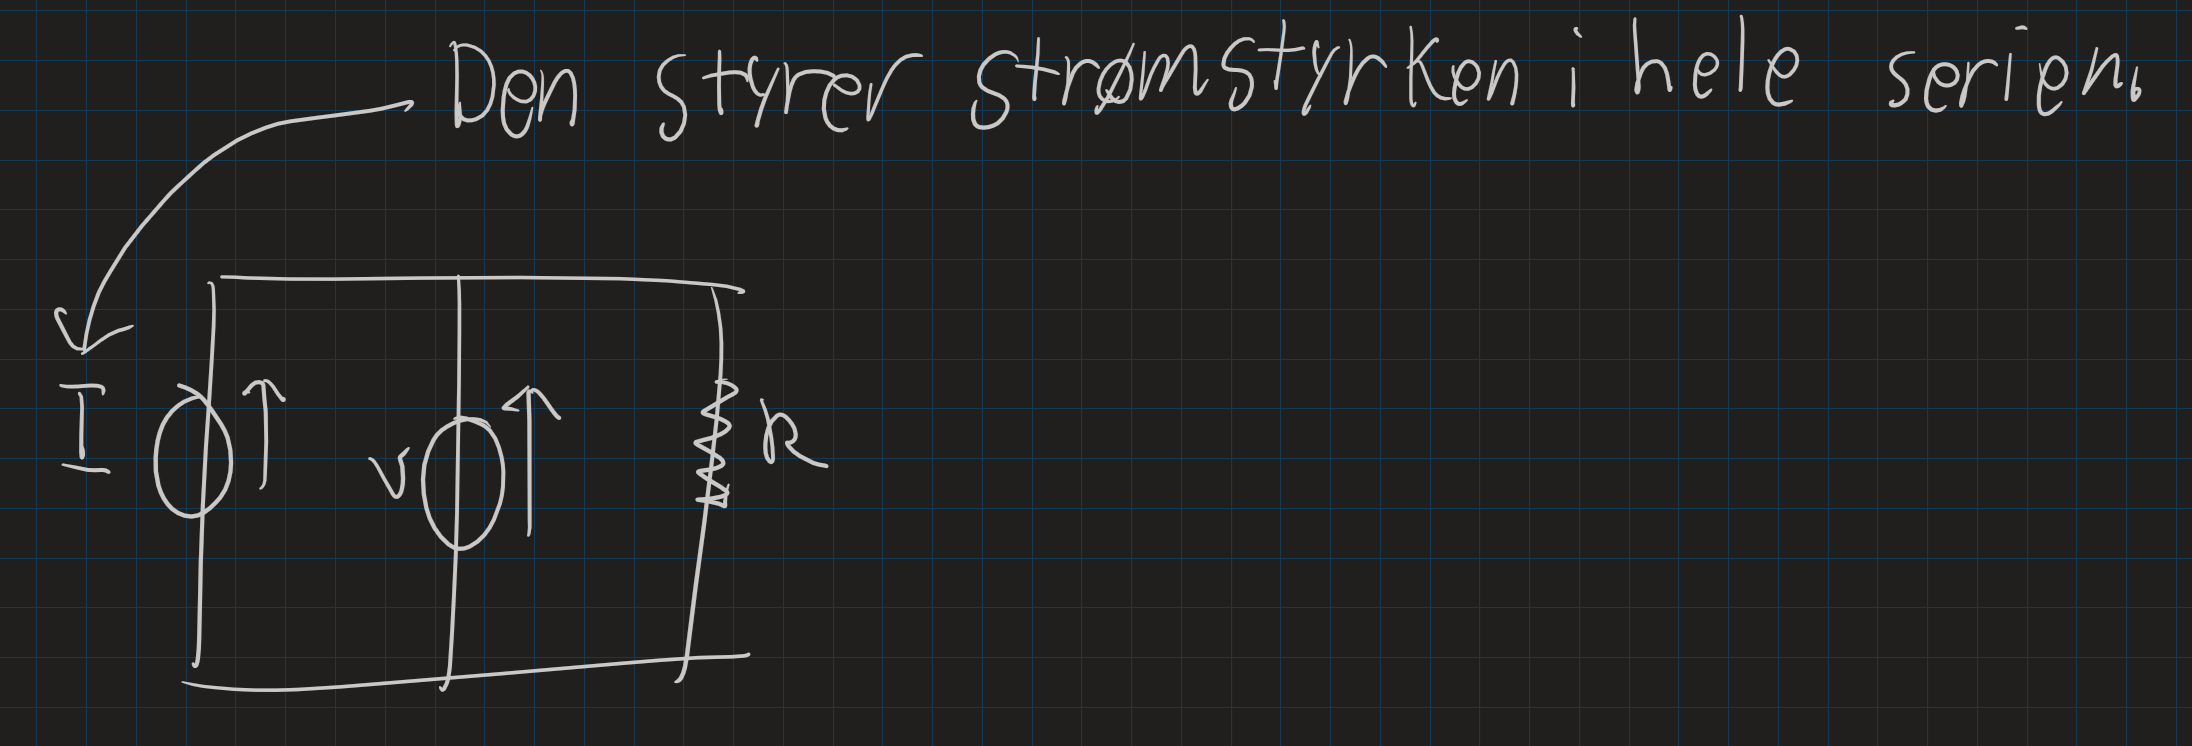 Den styrer strømstyrken i hele serien.
I
V
R